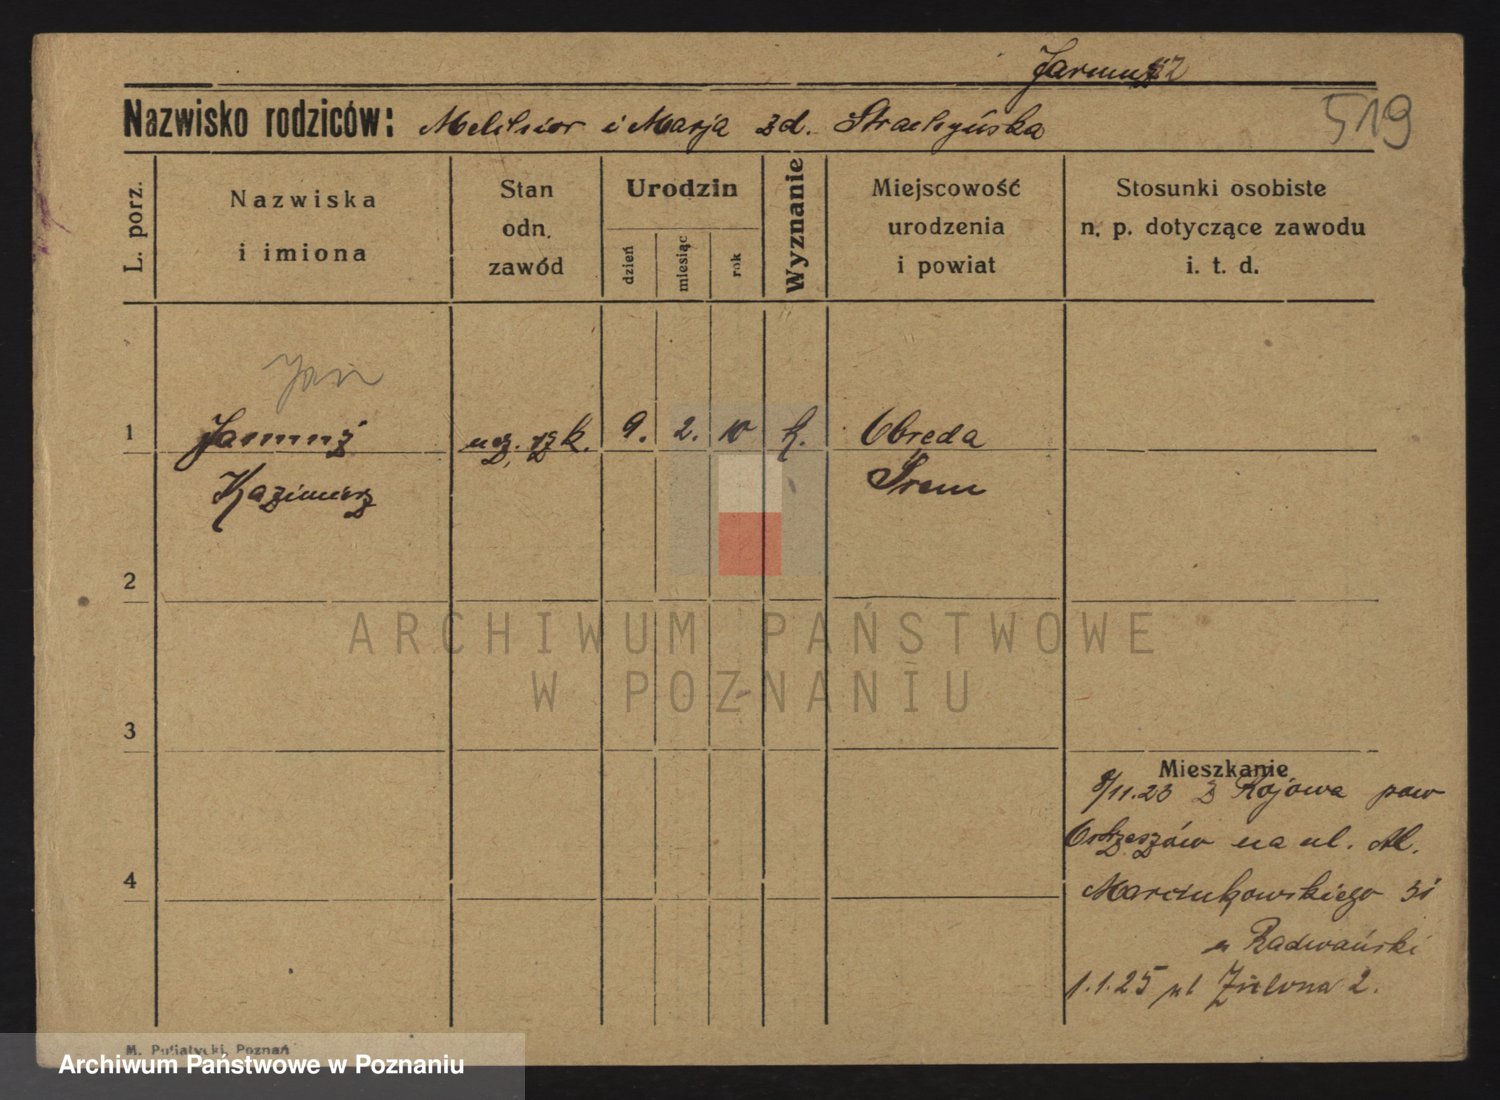 Jarmuż
519
Nazwisko rodziców: Melchior i Marja zd. Strachyńska
L. porz.
Nazwiska
i imiona
Stan
odn.
zawód
Urodzin
dzień
miesiąc
rok
Wyznanie
Miejscowość
urodzenia
i powiat
Stosunki osobiste
n. p. dotyczące zawodu
i. t. d.
Jan
1 Jarmuż ucz. rzk. 9. 2. 10 k. Obreda
Kazimierz Śrem
2
ARCHIWUM PAŃSTWOWE
W POZNANIU
3
Mieszkanie
8/11.23 z Rojowa pow
Ostrzeszów na ul. Al.
4
Marcinkowskiego
u Radwański
1.1.25 pl Zielona 2.
M. Putiatycki, Poznań
Archiwum Państwowe w Poznaniu